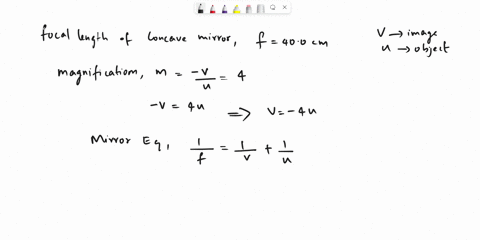 focal length of concave mirror, f = 40.0 cm
V → image
u → object
magnification, m = -V/u = 4
-V = 4u ⟹ V = -4u
Mirror Eq, 1/f = 1/V + 1/u